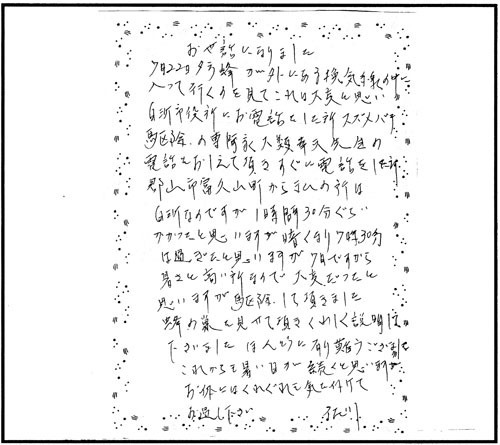 お世話になりました
7月22日夕方蜂が外にある換気扇の中に
入って行くのを見てこれは大変と思い
白河市役所にお電話をした所スズメバチ
駆除の専門家大類幸夫先生の
電話をおしえて頂きすぐに電話をした所
郡山市富久山町から私の所は
白河なのですが1時間30分ぐらい
かかったと思いますが暗くなり7時30分
は過ぎたと思いますが7月ですから
暑さと高い所なので大変だったと
思いますが駆除して頂きました
蜂の巣を見せて頂きくわしく説明して
下さいましたほんとうに有難うございました
これからも暑い日が続くと思いますが
お体にはくれぐれも気を付けて
お過し下さい